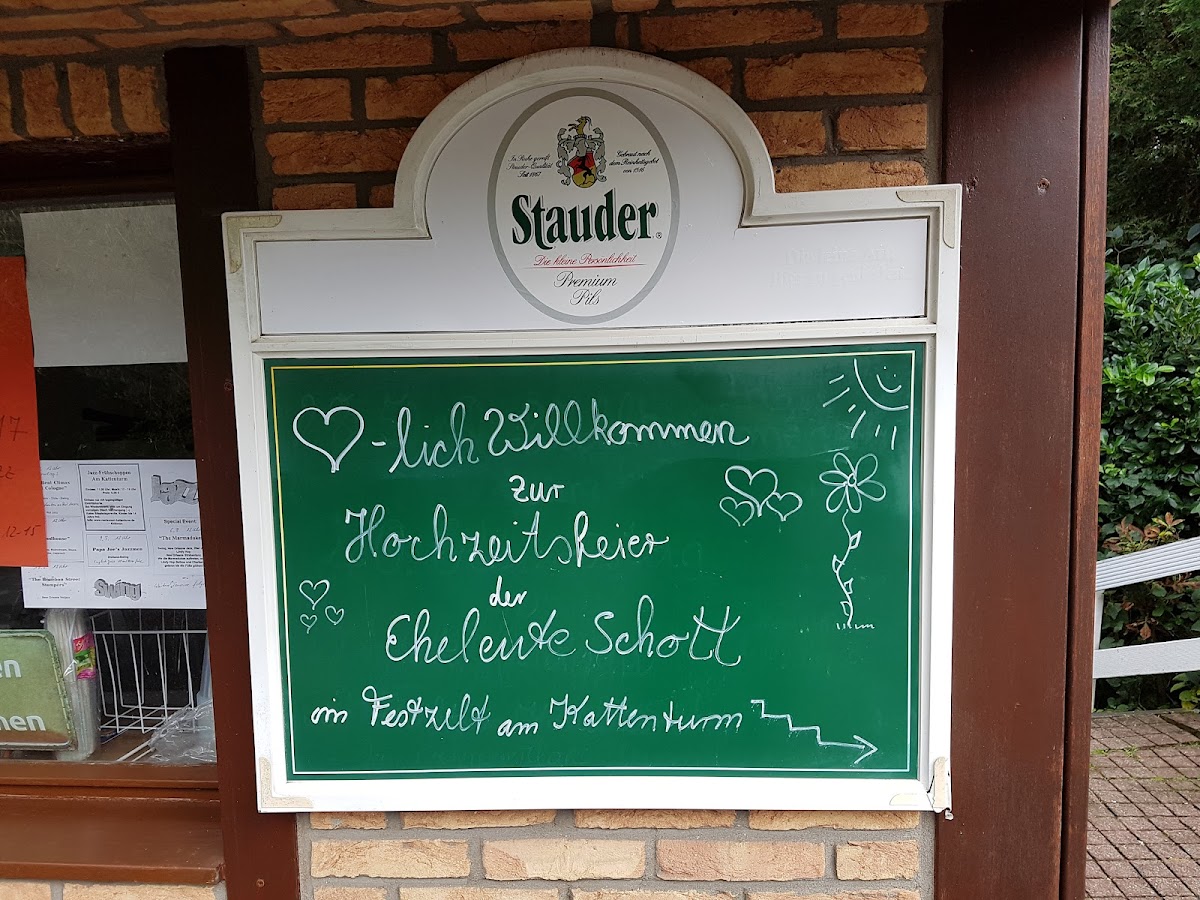 In Ruhe gereift
Stauder-Qualität
Seit 1867
Gebraut nach
dem Reinheitsgebot
von 1516
Stauder®
Die kleine Persönlichkeit
Premium
Pils
-lich Willkommen
zur
Hochzeitsfeier
der
Eheleute Schott
im Festzelt am Kattenturm
17
12-15
Jazz-Frühschoppen
Am Kattenturm
Special Event
"The Marmaduke
Papa Joe's Jazzmen
"The Bourbon Street
Stompers"
Swing
en
nen